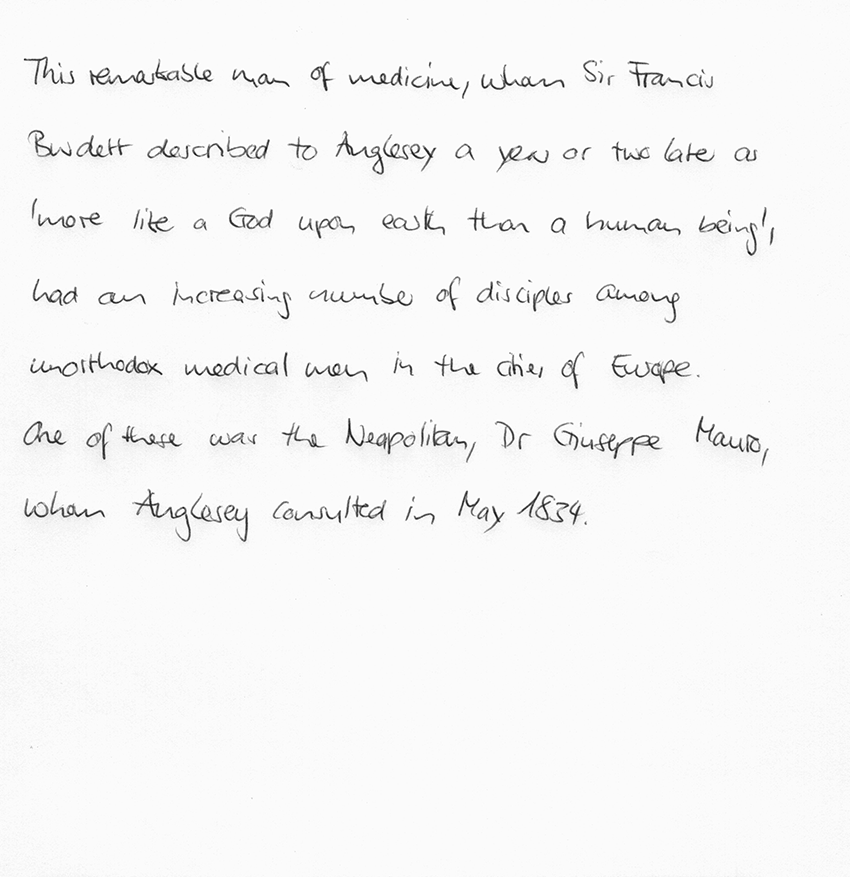 This remarkable man of medicine, whom Sir Francis
Burdett described to Anglesey a year or two late as
'more like a God upon earth than a human being',
had an increasing number of disciples among
unorthodox medical men in the cities of Europe.
One of these was the Neapolitan, Dr Giuseppe Mauro,
whom Anglesey consulted in May 1834.